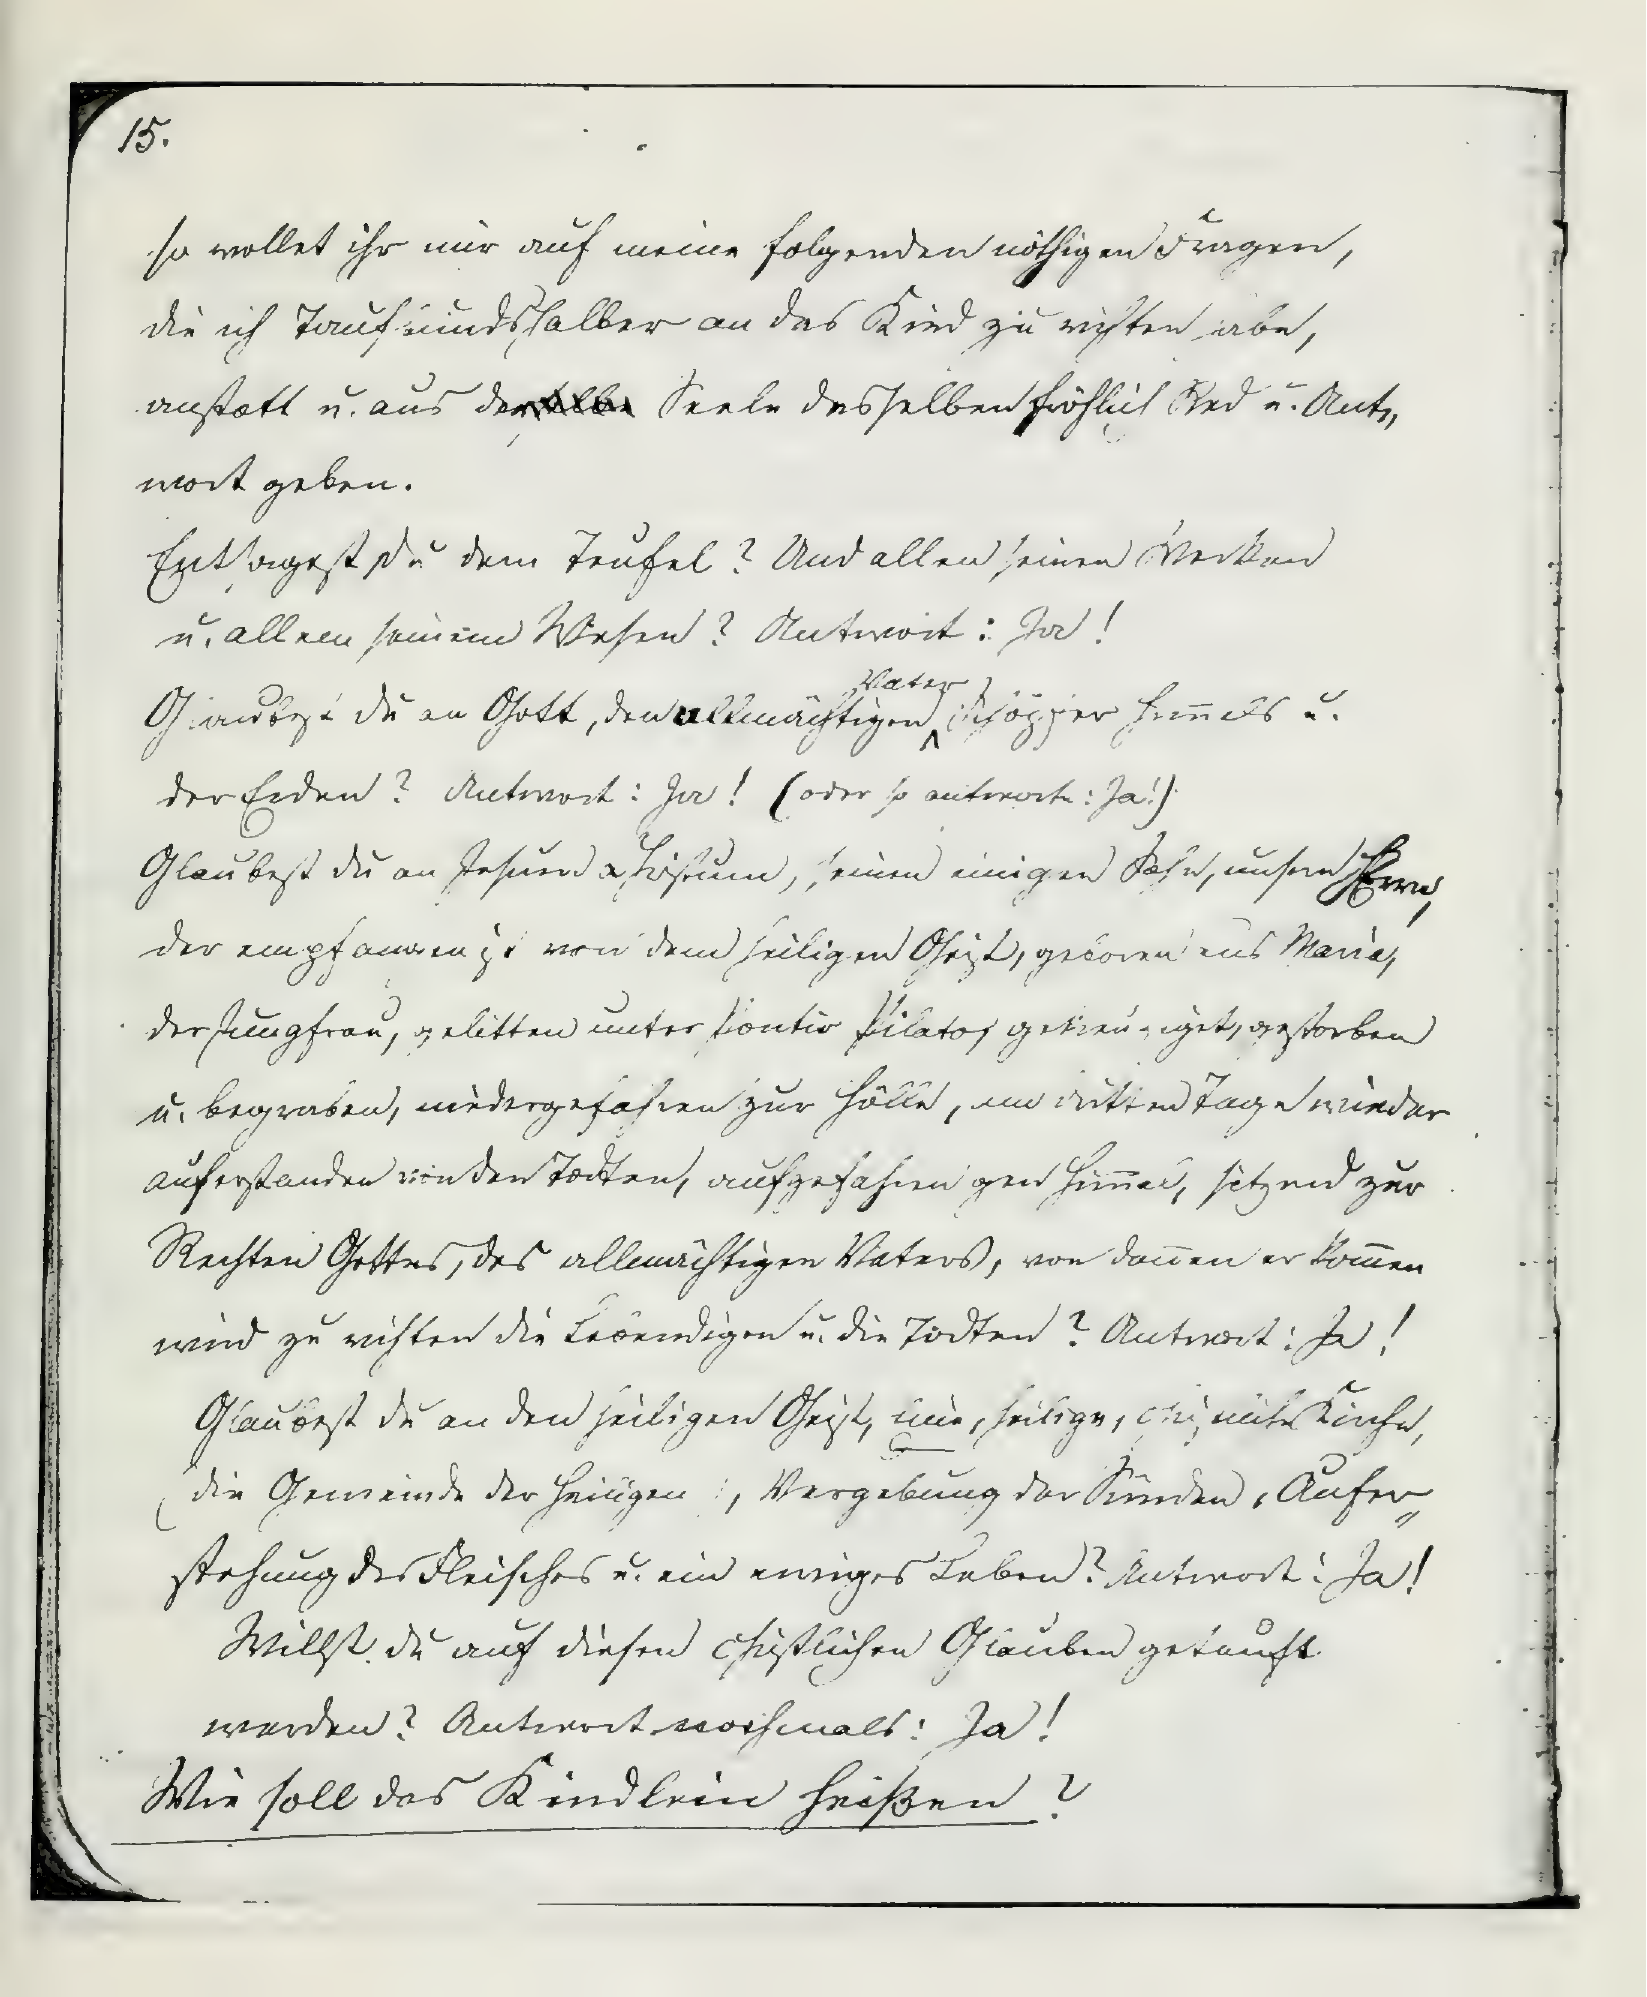 15.
so wollet ihr mir auf meine folgenden nöthigen Fragen,
die ich Taufbundshalber an das Kind zu richten habe,
anstatt u. aus der Seele desselben fröhlich Red u. Ant-
wort geben.
Entsagest du dem Teufel? Und allen seinen Werken
u. allem seinem Wesen? Antwort: Ja!
Glaubest du an Gott, den allmächtigen Vater, Schöpfer Himmels u.
der Erden? Antwort: Ja! (oder so antworte: Ja!)
Glaubest du an Jesum Christum, seinen einigen Sohn, unsern Herrn,
der empfangen ist von dem heiligen Geist, geboren aus Maria,
der Jungfrau, gelitten unter Pontio Pilato, gekreuziget, gestorben
u. begraben, niedergefahren zur Hölle, am dritten Tage wieder
auferstanden von den Todten, aufgefahren gen Himmel, sitzend zur
Rechten Gottes, des allmächtigen Vaters, von dannen er kommen
wird zu richten die Lebendigen u. die Todten? Antwort: Ja!
Glaubest du an den heiligen Geist, eine, heilige, christliche Kirche,
die Gemeinde der Heiligen, Vergebung der Sünden, Aufer-
stehung des Fleisches u. ein ewiges Leben? Antwort: Ja!
Willst du auf diesen christlichen Glauben getauft
werden? Antwort nochmals: Ja!
Wie soll das Kindlein heißen?